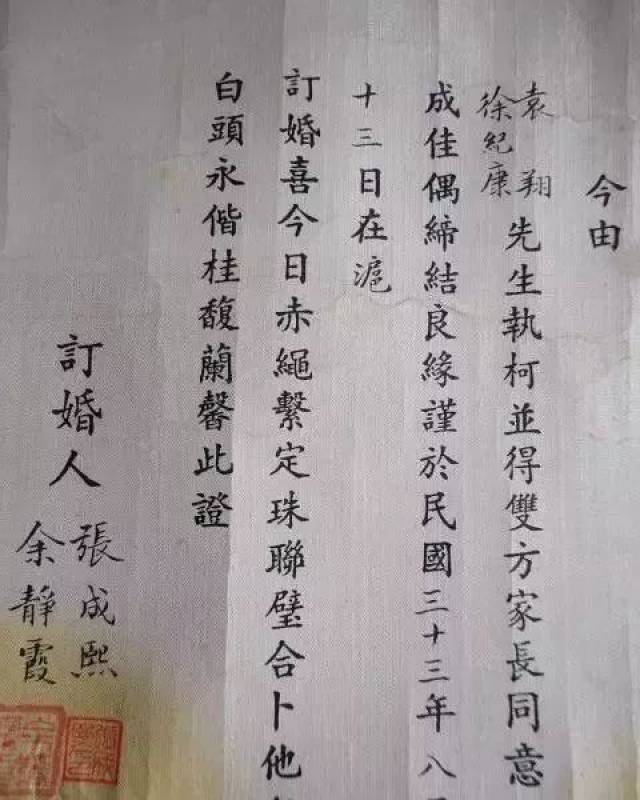 今由
袁翔
徐紀康
先生執柯並得雙方家長同意
成佳偶締結良緣謹於民國三十三年八
十三日在滬
訂婚喜今日赤繩繫定珠聯璧合卜他
白頭永偕桂馥蘭馨此證
訂婚人
張成熙
余靜霞